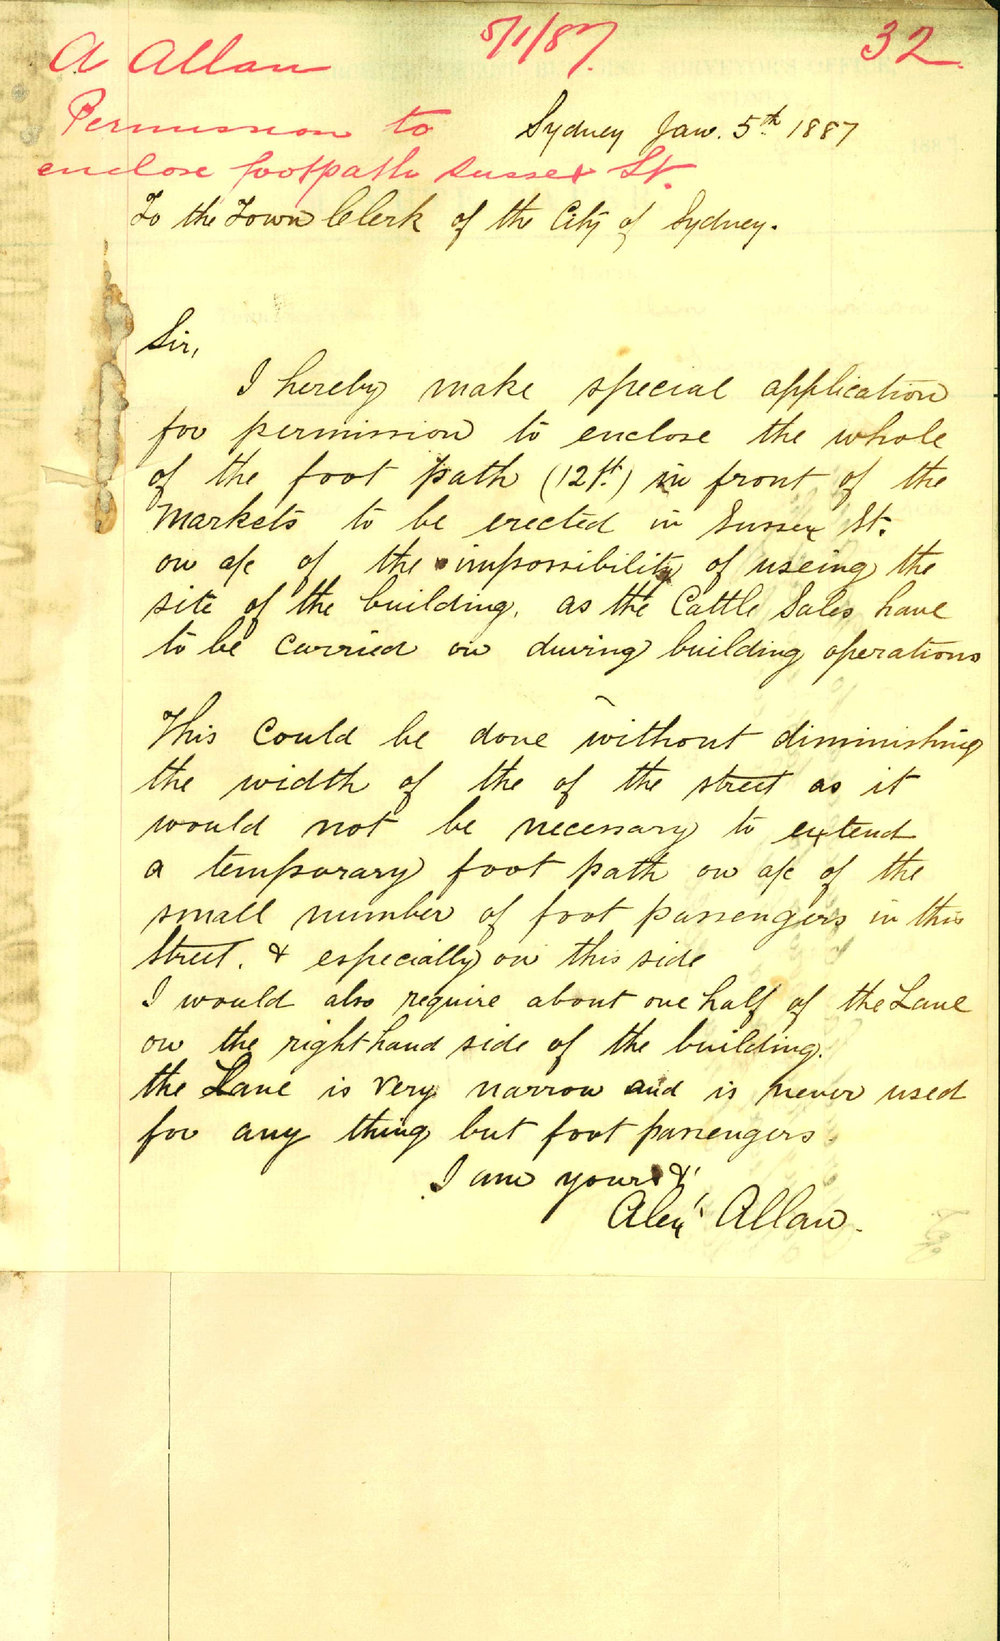 A Allan 5/1/87. 32.
Permission to
enclose footpath Sussex St.
Sydney Jan. 5th 1887
To the Town Clerk of the City of Sydney.
Sir,
I hereby make special application
for permission to enclose the whole
of the foot path (12ft) in front of the
Markets to be erected in Sussex St.
on a/c of the impossibility of useing the
site of the building, as the Cattle Sales have
to be carried on during building operations
This could be done without diminishing
the width of the of the street as it
would not be necessary to extend
a temporary foot path on a/c of the
small number of foot passengers in this
street. & especially on this side
I would also require about one half of the Lane
on the right hand side of the building.
the Lane is very narrow and is never used
for any thing but foot passengers
I am yours &
Alexr Allan.